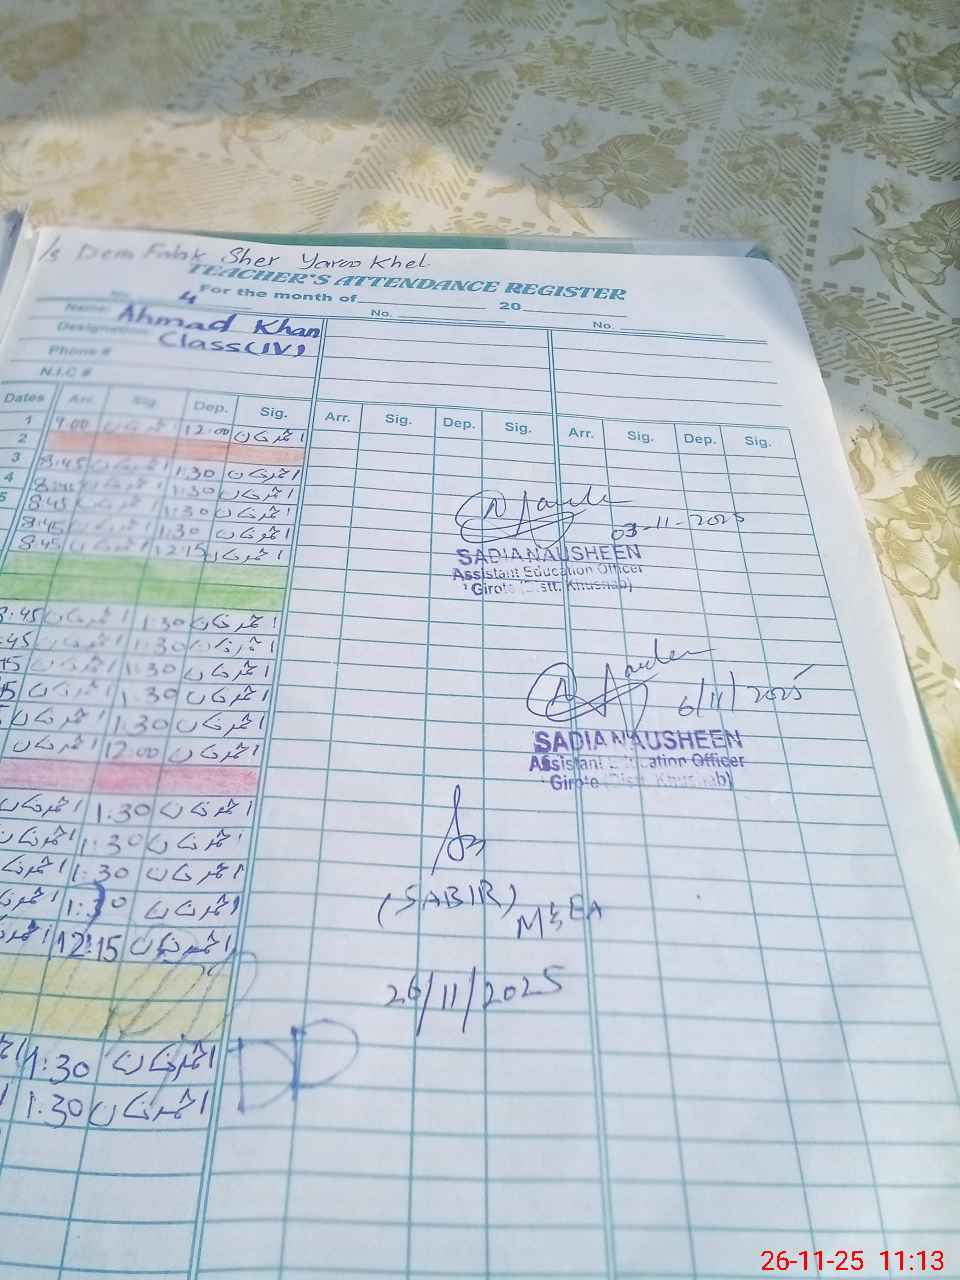 Dem Falak Sher Yaroo Khel
TEACHER'S ATTENDANCE REGISTER
For the month of 20
No. No.
4
Name: Ahmad Khan
Designation Class (IV)
Phone #
N.I.C #
Dates Arr. Sig. Dep. Sig. Arr. Sig. Dep. Sig. Arr. Sig. Dep. Sig.
1 9:00 احمد خان 12:00 احمد خان
2
3 8:45 احمد خان 1:30 احمد خان
4 8:45 احمد خان 1:30 احمد خان
5 8:45 احمد خان 1:30 احمد خان
8:45 احمد خان 1:30 احمد خان
8:45 احمد خان 12:15 احمد خان
03-11-2025
SADIA NAUSHEEN
Assistant Education Officer
Girote (Distt. Khushab)
8:45 احمد خان 1:30 احمد خان
:45 احمد خان 1:30 احمد خان
45 احمد خان 1:30 احمد خان
45 احمد خان 1:30 احمد خان
احمد خان 1:30 احمد خان
احمد خان 12:00 احمد خان
6/11/2025
SADIA NAUSHEEN
Assistant Education Officer
Girote (Distt. Khushab)
احمد خان 1:30 احمد خان
احمد خان 1:30 احمد خان
احمد خان 1:30 احمد خان
احمد خان 1:30 احمد خان
احمد 12:15 احمد خان
(SABIR)
M&EA
26/11/2025
1:30 احمد خان
1:30 احمد خان
26-11-25 11:13